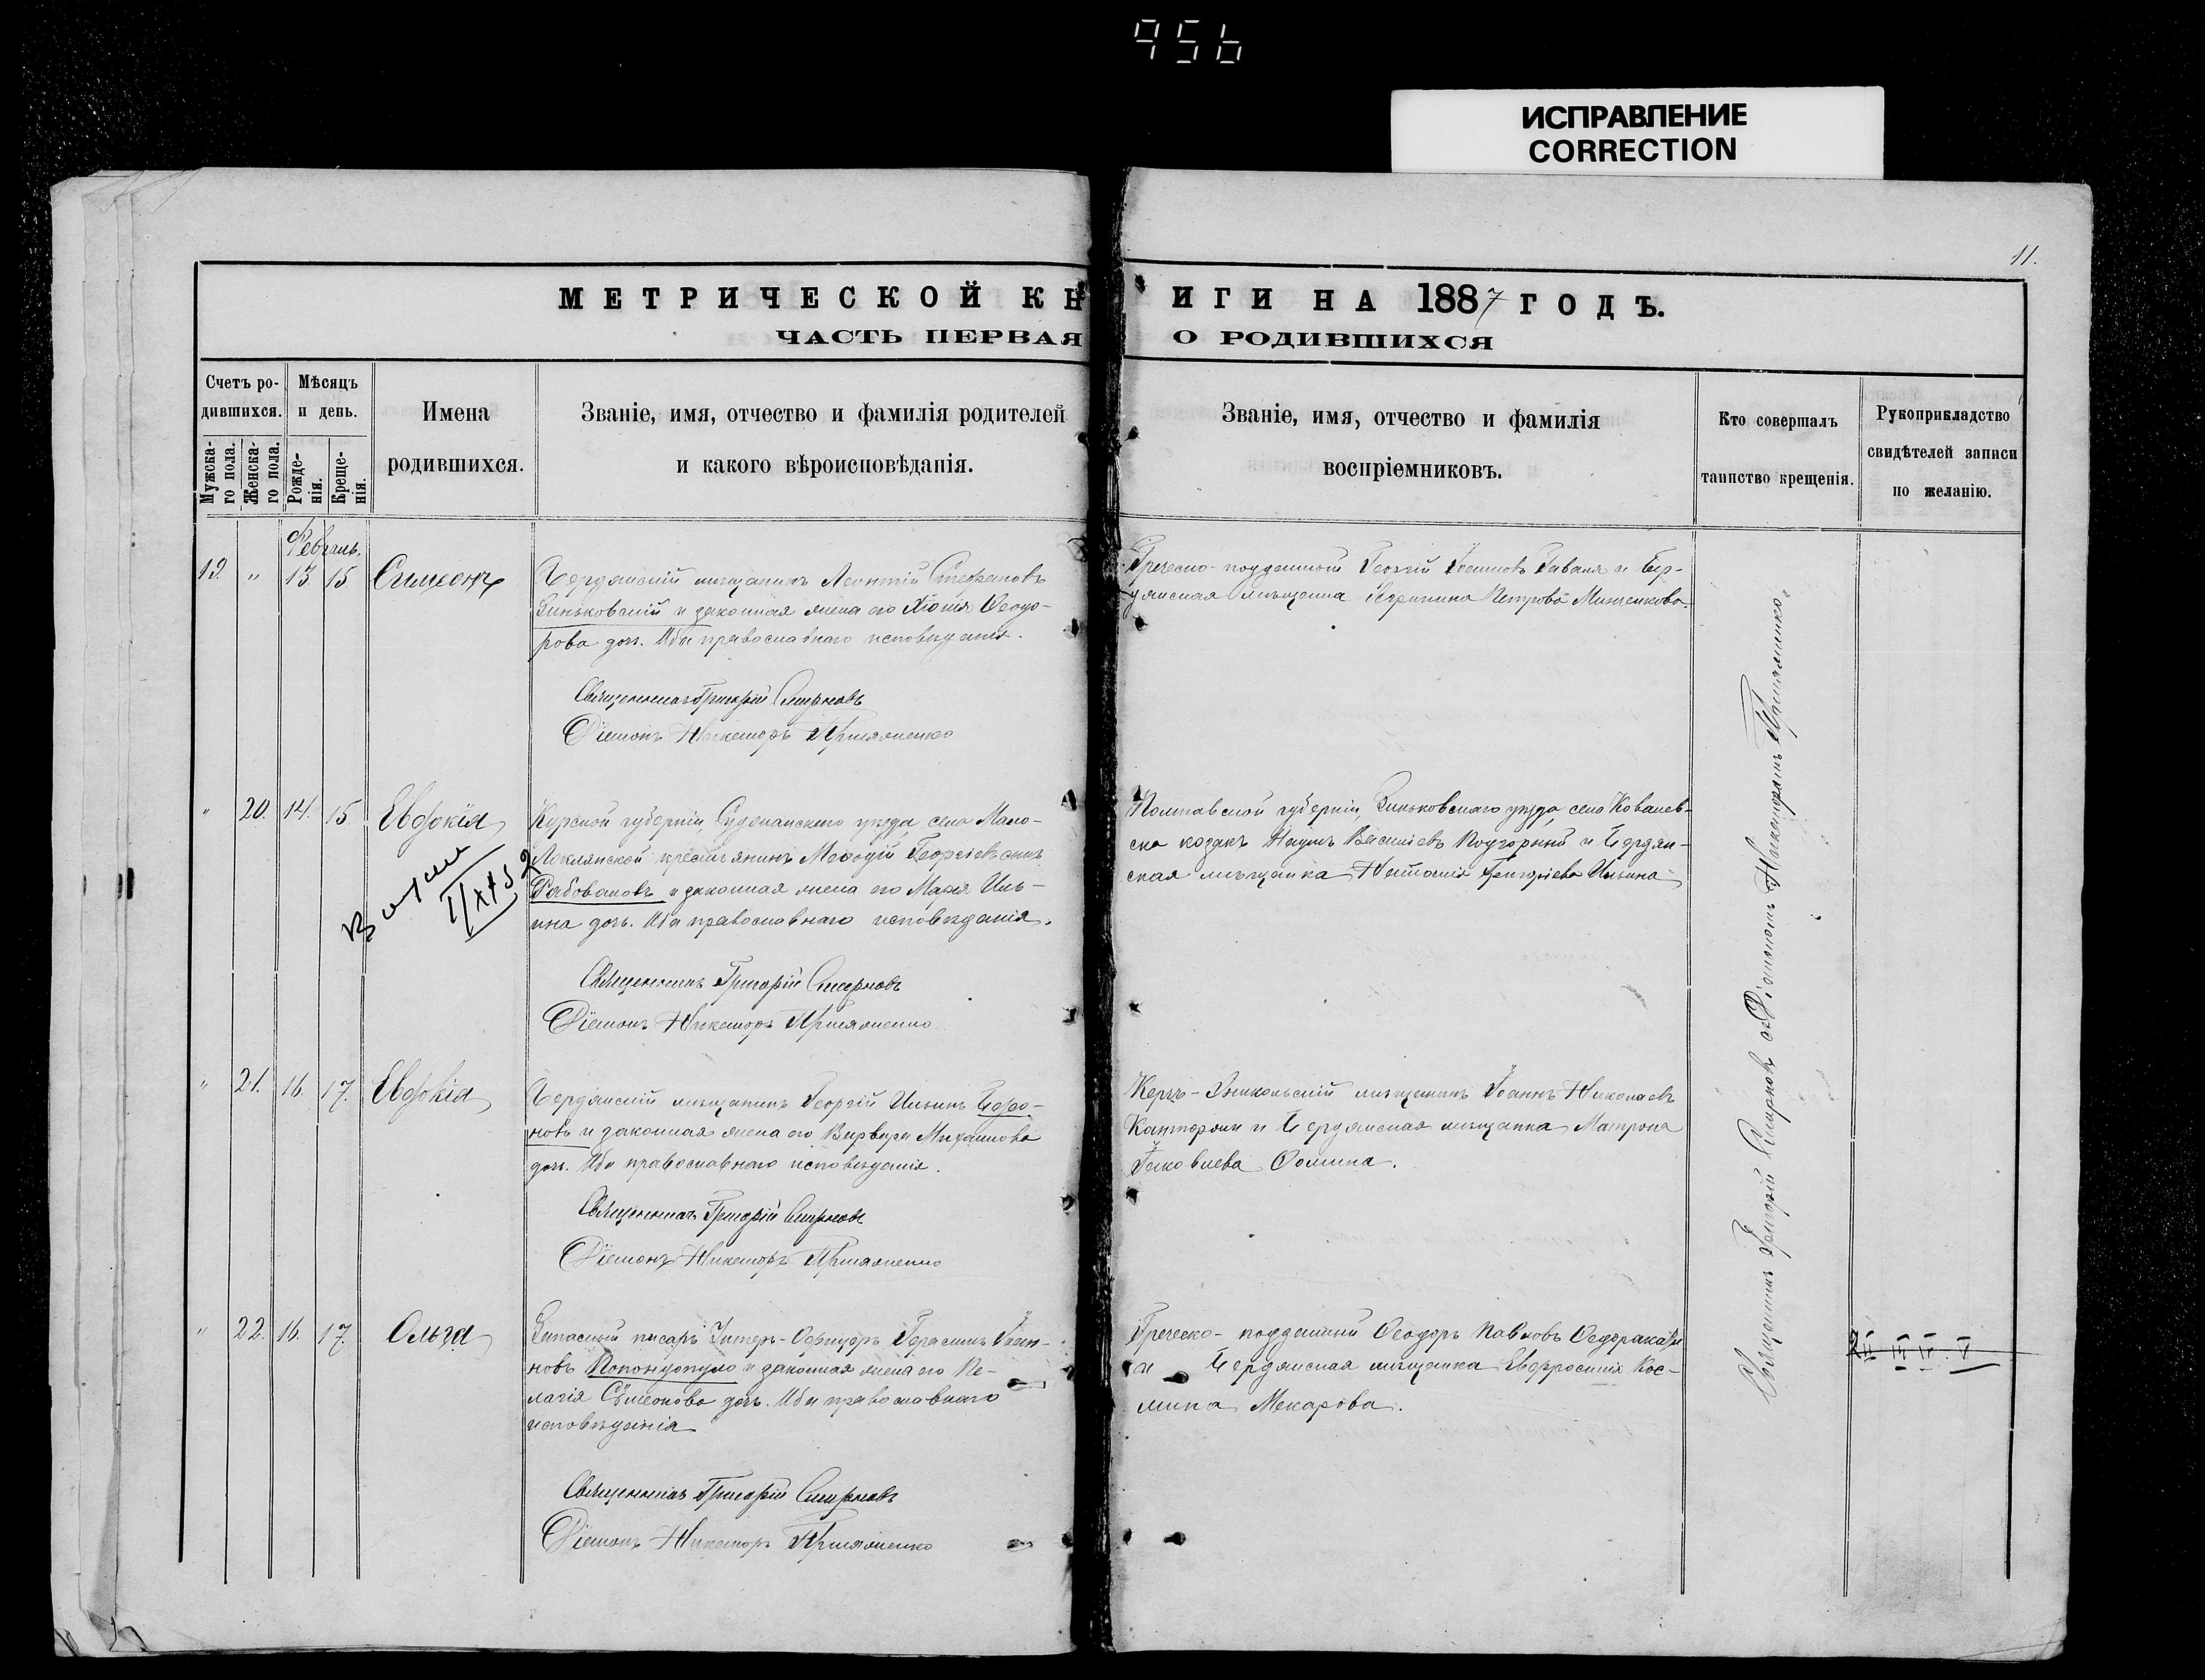 956
ИСПРАВЛЕНИЕ
CORRECTION
11.
МЕТРИЧЕСКОЙ КНИГИ НА 1887 ГОДЪ.
ЧАСТЬ ПЕРВАЯ О РОДИВШИХСЯ
Счетъ родившихся.
Мужскаго пола.
Женскаго пола.
Мѣсяцъ и день.
Рожденія.
Крещенія.
Имена
родившихся.
Званіе, имя, отчество и фамилія родителей
и какого вѣроисповѣданія.
Званіе, имя, отчество и фамилія
воспріемниковъ.
Кто совершалъ
таинство крещенія.
Рукоприкладство
свидѣтелей записи
по желанію.
Февраль.
19. " 13. 15 Симеонъ
Бердянскій мѣщанинъ Леонтій Стефановъ
Зиньковскій и законная жена его Феодо-
рова доч. Оба православнаго исповѣданія.
Священникъ Григорій Смирновъ
Діаконъ Никаноръ
Греческо-подданный Георгій Іоанновъ и Бер-
дянская мѣщанка Петрова
" 20. 14. 15 Евдокія
Курской губерніи, Суджанскаго уѣзда, села Мало-
Локнянской крестьянинъ Меѳодій Георгіевъ сынъ
и законная жена его Марія Иль-
ина дочь. Оба православнаго исповѣданія.
Священникъ Григорій Смирновъ
Діаконъ Никаноръ
Полтавской губерніи, Зиньковскаго уѣзда, села Ковалев-
ка козакъ Наумъ Василіевъ Подгорный и Бердян-
ская мѣщанка Наталія Григоріева Ильина
" 21. 16. 17. Евдокія
Бердянскій мѣщанинъ Георгій Ильинъ
новъ и законная жена его Варвара Михаилова
доч. Оба православнаго исповѣданія.
Священникъ Григорій Смирновъ
Діаконъ Никаноръ
Керчь-Эникольскій мѣщанинъ Іоаннъ Николаевъ
и Бердянская мѣщанка Матрона
Іаковлева Фомина.
" 22. 16. 17. Ольга
Запасный писарь Унтеръ-Офицеръ Герасимъ Іоан-
новъ и законная жена его Пе-
лагія Сѵмеонова дочь. Оба православнаго
исповѣданія
Священникъ Григорій Смирновъ
Діаконъ Никаноръ
Греческо-подданный Феодоръ Павловъ
и Бердянская мѣщанка Евфросинія Кос-
мина Макарова.
Священникъ Григорій Смирновъ съ Діакономъ Никаноромъ